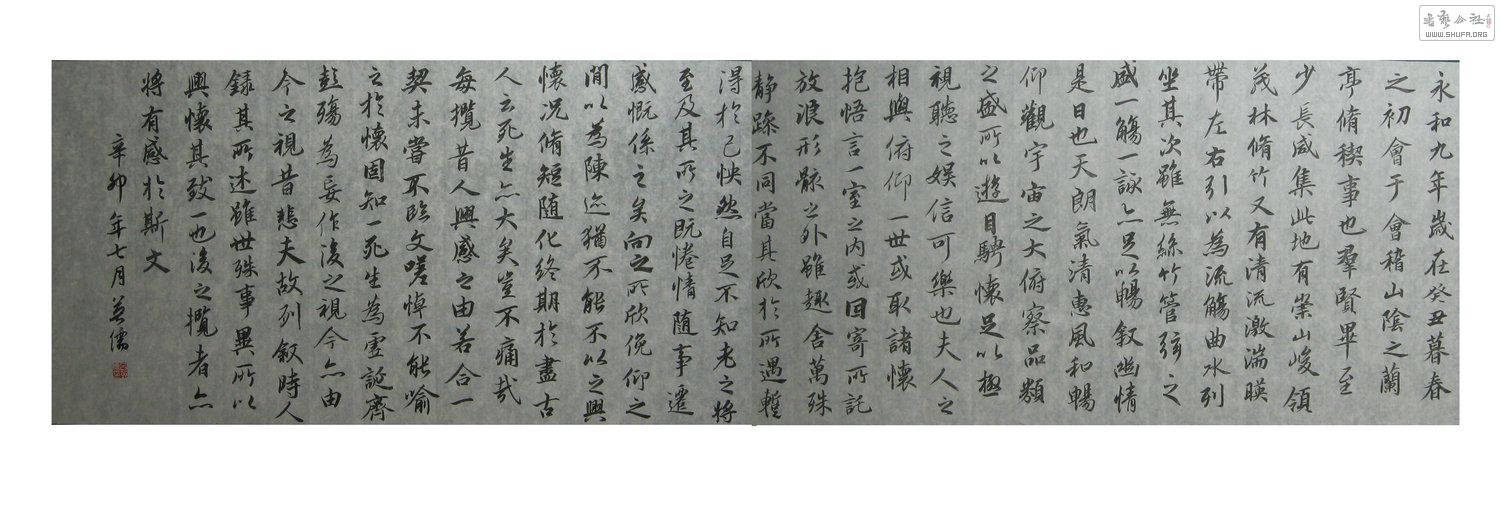 永和九年歲在癸丑暮春
之初會于會稽山陰之蘭
亭脩稧事也羣賢畢至
少長咸集此地有崇山峻領
茂林脩竹又有清流激湍暎
帶左右引以為流觴曲水列
坐其次雖無絲竹管弦之
盛一觴一詠亦足以暢叙幽情
是日也天朗氣清惠風和暢
仰觀宇宙之大俯察品類
之盛所以遊目騁懷足以極
視聽之娛信可樂也夫人之
相與俯仰一世或取諸懷
抱悟言一室之內或因寄所託
放浪形骸之外雖趣舍萬殊
静躁不同當其欣於所遇蹔
得於己怏然自足不知老之將
至及其所之既惓情随事遷
感慨係之矣向之所欣俛仰之
閒以為陳迹猶不能不以之興
懷况脩短随化終期於盡古
人云死生亦大矣豈不痛哉
每攬昔人興感之由若合一
契未嘗不臨文嗟悼不能喻
之於懷固知一死生為虛誕齊
彭殤為妄作後之視今亦由
今之視昔悲夫故列叙時人
録其所述雖世殊事異所以
興懷其致一也後之攬者亦
將有感於斯文
辛卯年七月
书艺公社
WWW.SHUFA.ORG